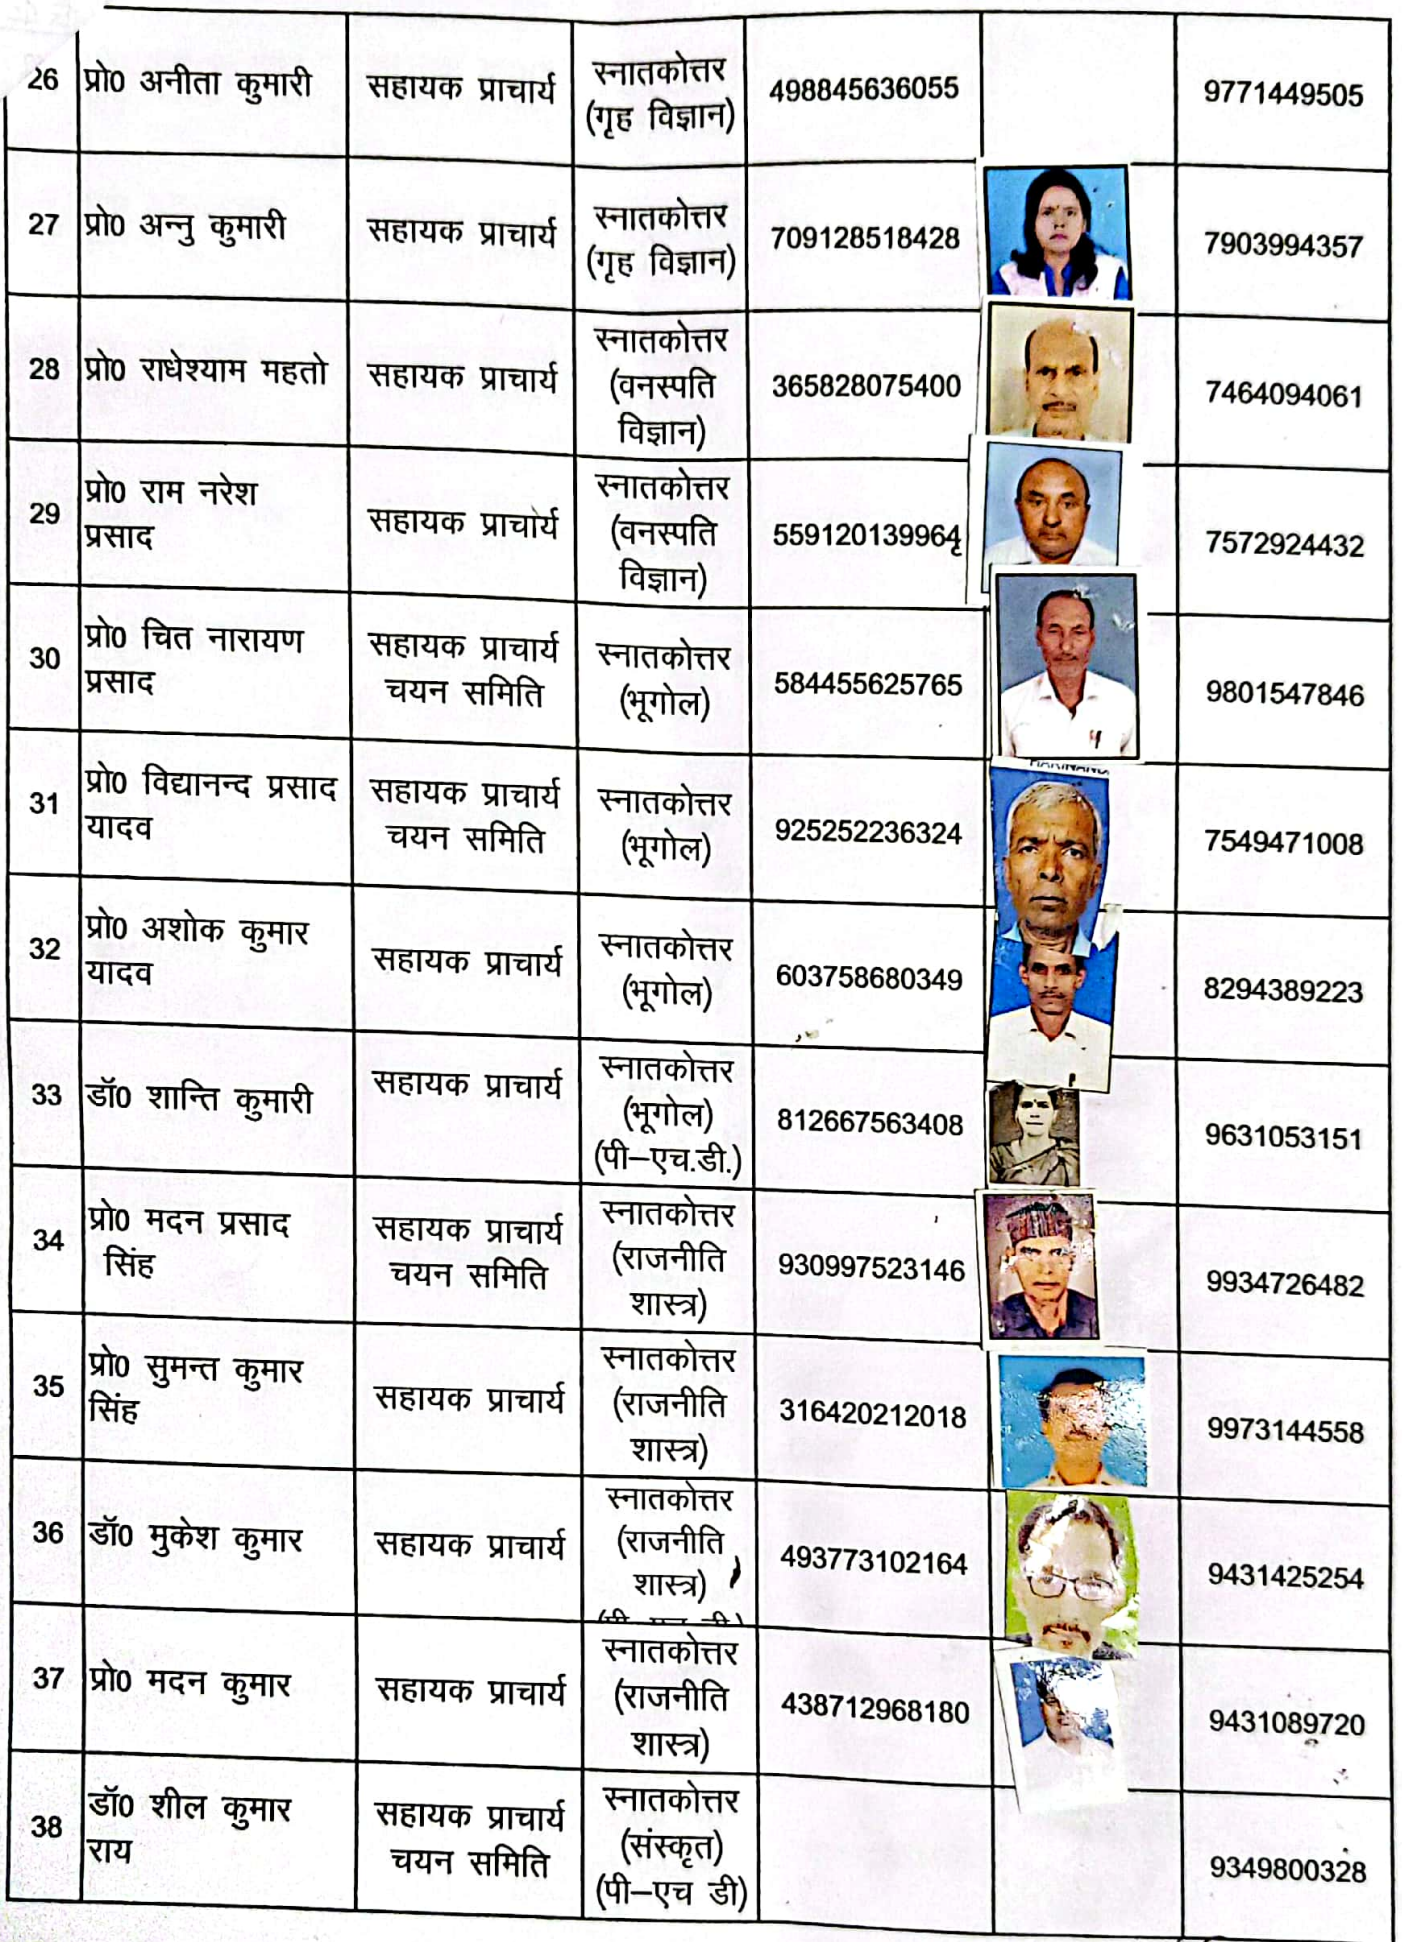 26 प्रो0 अनीता कुमारी सहायक प्राचार्य स्नातकोत्तर (गृह विज्ञान) 498845636055 9771449505
27 प्रो0 अन्नु कुमारी सहायक प्राचार्य स्नातकोत्तर (गृह विज्ञान) 709128518428 7903994357
28 प्रो0 राधेश्याम महतो सहायक प्राचार्य स्नातकोत्तर (वनस्पति विज्ञान) 365828075400 7464094061
29 प्रो0 राम नरेश प्रसाद सहायक प्राचार्य स्नातकोत्तर (वनस्पति विज्ञान) 559120139964 7572924432
30 प्रो0 चित नारायण प्रसाद सहायक प्राचार्य चयन समिति स्नातकोत्तर (भूगोल) 584455625765 9801547846
31 प्रो0 विद्यानन्द प्रसाद यादव सहायक प्राचार्य चयन समिति स्नातकोत्तर (भूगोल) 925252236324 7549471008
32 प्रो0 अशोक कुमार यादव सहायक प्राचार्य स्नातकोत्तर (भूगोल) 603758680349 8294389223
33 डॉ0 शान्ति कुमारी सहायक प्राचार्य स्नातकोत्तर (भूगोल) (पी–एच.डी.) 812667563408 9631053151
34 प्रो0 मदन प्रसाद सिंह सहायक प्राचार्य चयन समिति स्नातकोत्तर (राजनीति शास्त्र) 930997523146 9934726482
35 प्रो0 सुमन्त कुमार सिंह सहायक प्राचार्य स्नातकोत्तर (राजनीति शास्त्र) 316420212018 9973144558
36 डॉ0 मुकेश कुमार सहायक प्राचार्य स्नातकोत्तर (राजनीति शास्त्र) 493773102164 9431425254
37 प्रो0 मदन कुमार सहायक प्राचार्य स्नातकोत्तर (राजनीति शास्त्र) 438712968180 9431089720
38 डॉ0 शील कुमार राय सहायक प्राचार्य चयन समिति स्नातकोत्तर (संस्कृत) (पी–एच डी) 9349800328